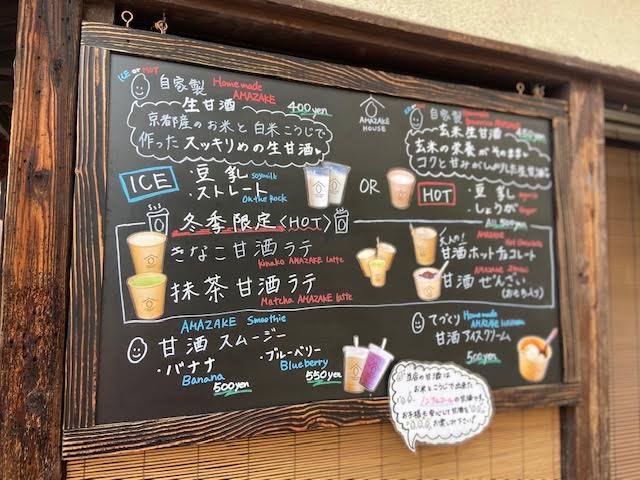 ICE or HOT
自家製 Home made AMAZAKE
生甘酒 400yen
京都産のお米と白米こうじで
作ったスッキリめの生甘酒
AMAZAKE HOUSE
自家製
玄米生甘酒 450yen
玄米の栄養がそのまま
コクと甘みがしっかりした生甘酒
ICE
・豆乳 soymilk
・ストレート On the Rock
OR
HOT
・豆乳
・しょうが Ginger
ALL 500yen
冬季限定〈HOT〉
きなこ甘酒ラテ
Kinako AMAZAKE Latte
抹茶甘酒ラテ
Matcha AMAZAKE Latte
大人の! AMAZAKE Hot Chocolate
甘酒ホットチョコレート
AMAZAKE Zenzai
甘酒ぜんざい
(おもち入り)
AMAZAKE Smoothie
甘酒スムージー
・バナナ
Banana
500yen
・ブルーベリー
Blueberry
550yen
てづくり Home made AMAZAKE
甘酒アイスクリーム
500yen
当店の甘酒は
お米とこうじで出来た
ノンアルコールの甘酒です。
お子様も安心して甘酒を
お楽しみ下さい!